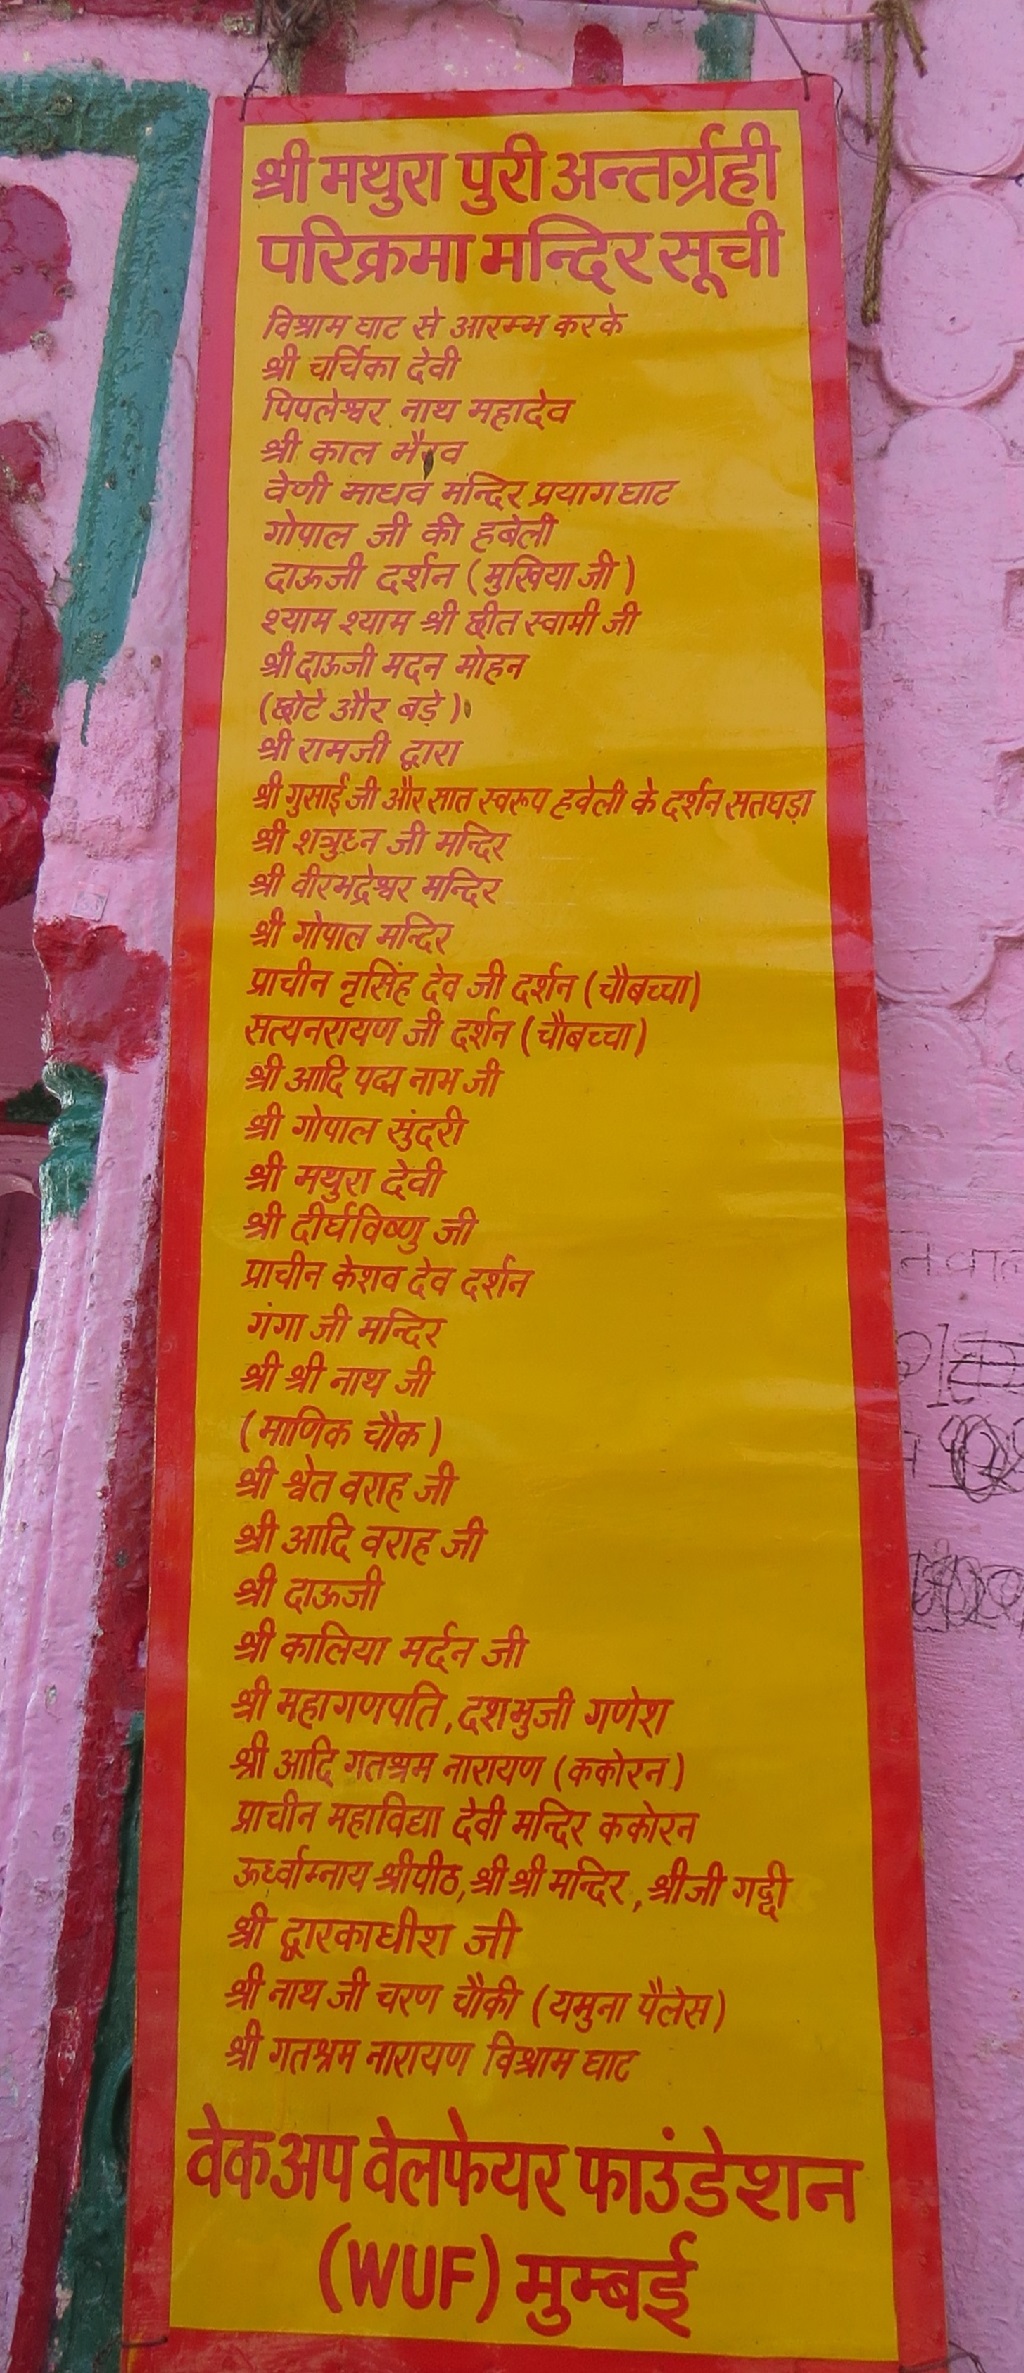 श्री मथुरा पुरी अन्तर्ग्रही
परिक्रमा मन्दिर सूची
विश्राम घाट से आरम्भ करके
श्री चर्चिका देवी
पिपलेश्वर नाथ महादेव
श्री काल भैरव
वेणी माधव मन्दिर प्रयाग घाट
गोपाल जी की हबेली
दाऊजी दर्शन (मुखिया जी)
श्याम श्याम श्री छीत स्वामी जी
श्री दाऊजी मदन मोहन
(छोटे और बड़े)
श्री रामजी द्वारा
श्री गुसाई जी और सात स्वरूप हवेली के दर्शन सतघड़ा
श्री शत्रुघ्न जी मन्दिर
श्री वीरभद्रेश्वर मन्दिर
श्री गोपाल मन्दिर
प्राचीन नृसिंह देव जी दर्शन (चौबच्चा)
सत्यनरायण जी दर्शन (चौबच्चा)
श्री आदि पद्म नाभ जी
श्री गोपाल सुंदरी
श्री मथुरा देवी
श्री दीर्घविष्णु जी
प्राचीन केशव देव दर्शन
गंगा जी मन्दिर
श्री श्री नाथ जी
(माणिक चौक)
श्री श्वेत वराह जी
श्री आदि वराह जी
श्री दाऊजी
श्री कालिया मर्दन जी
श्री महागणपति, दशभुजी गणेश
श्री आदि गतश्रम नारायण (ककोरन)
प्राचीन महाविद्या देवी मन्दिर ककोरन
ऊर्ध्वाम्नाय श्रीपीठ, श्री श्री मन्दिर, श्रीजी गद्दी
श्री द्वारकाधीश जी
श्री नाथ जी चरण चौकी (यमुना पैलेस)
श्री गतश्रम नारायण विश्राम घाट
वेकअप वेलफेयर फाउंडेशन
(WUF) मुम्बई